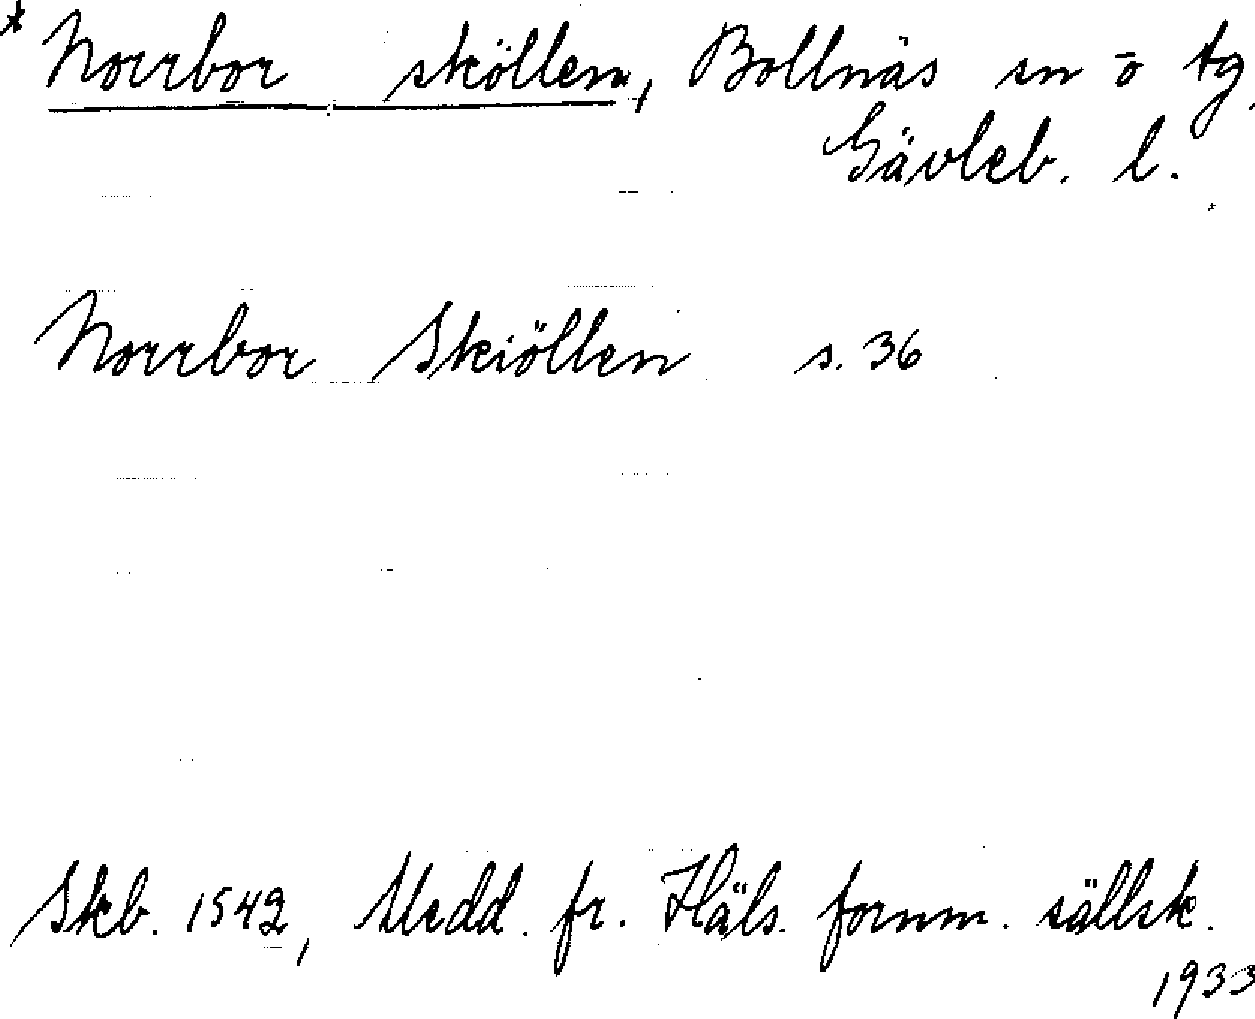 * Norrbor sköllen, Bollnäs sn o tg.
Gävleb. l.
Norrbor Skiöllen s. 36
Skb. 1542, Medd. fr. Häls. fornm. sällsk.
1933